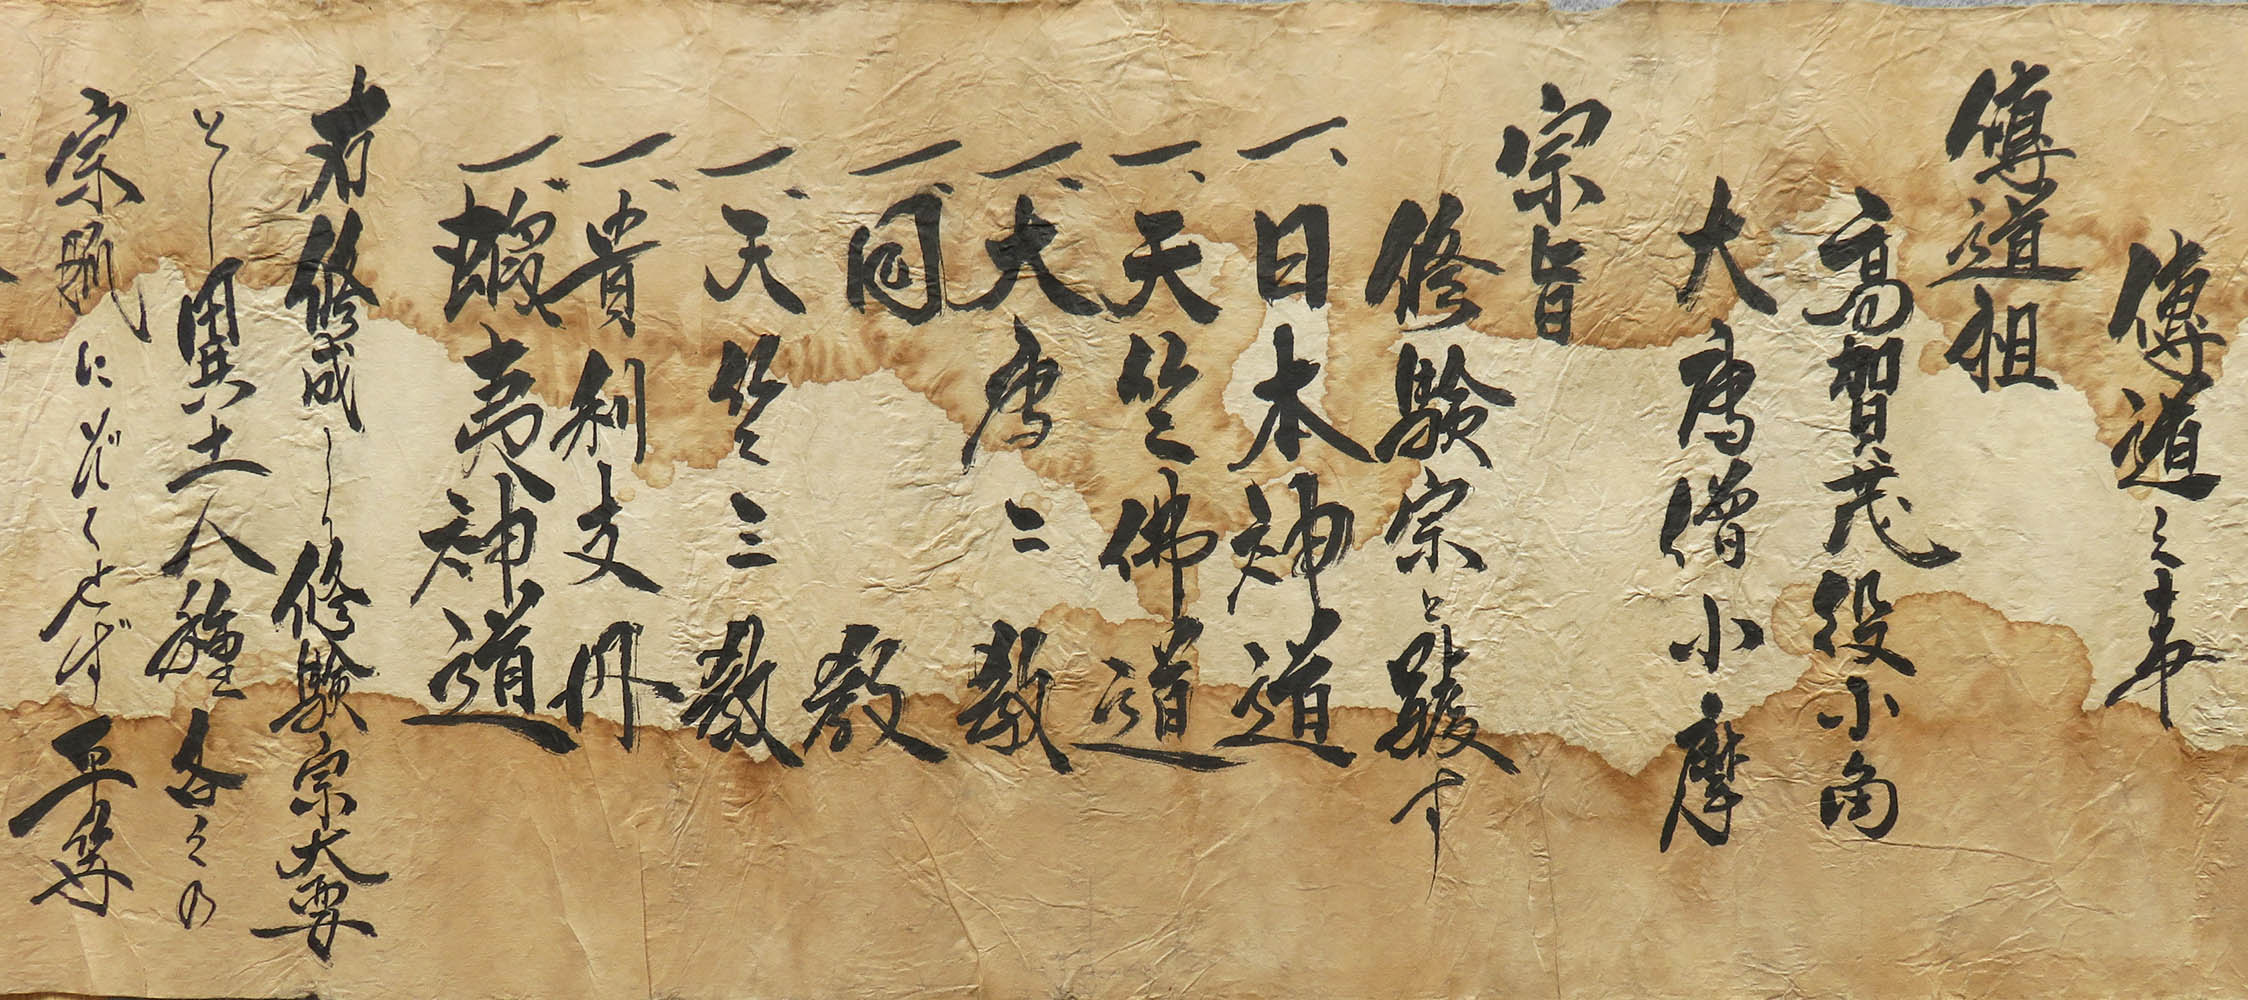 傳道之事
傳道祖
高賀茂役小角
大唐僧小摩
宗旨
修験宗と號す
一、日本神道
一、天竺佛道
一、大唐二教
一、同 教
一、天竺三教
一、貴利支丹
一、蝦夷神道
右修成し修験宗大要
とし異土人種各々の
宗派にぞくせず平等